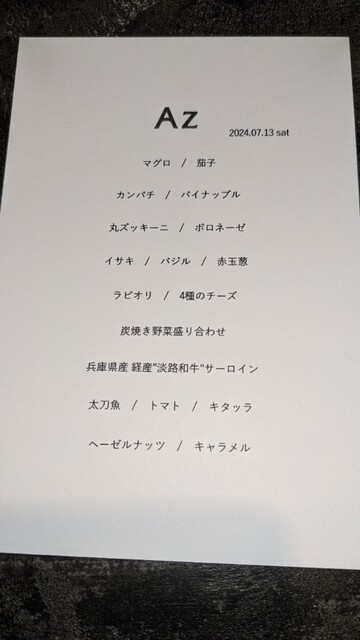 Az
2024.07.13 sat
マグロ / 茄子
カンパチ / パイナップル
丸ズッキーニ / ボロネーゼ
イサキ / バジル / 赤玉葱
ラビオリ / 4種のチーズ
炭焼き野菜盛り合わせ
兵庫県産 経産"淡路和牛"サーロイン
太刀魚 / トマト / キタッラ
ヘーゼルナッツ / キャラメル